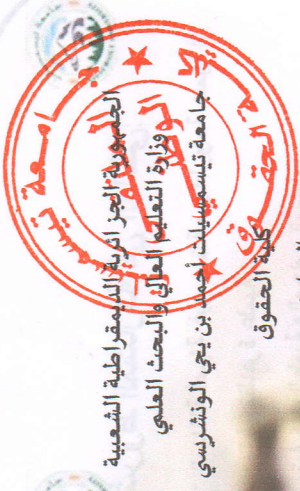 الجمهورية الجزائرية الديمقراطية الشعبية
وزارة التعليم العالي والبحث العلمي
جامعة تيسمسيلت أحمد بن يحي الونشريسي
كلية الحقوق